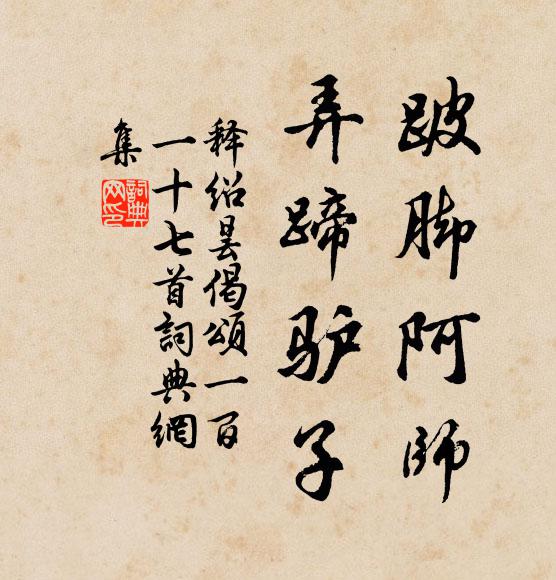 跛脚阿师
弄蹄驴子
释绍昙偈頌一百
一十七首詞典網
集
詞典网印